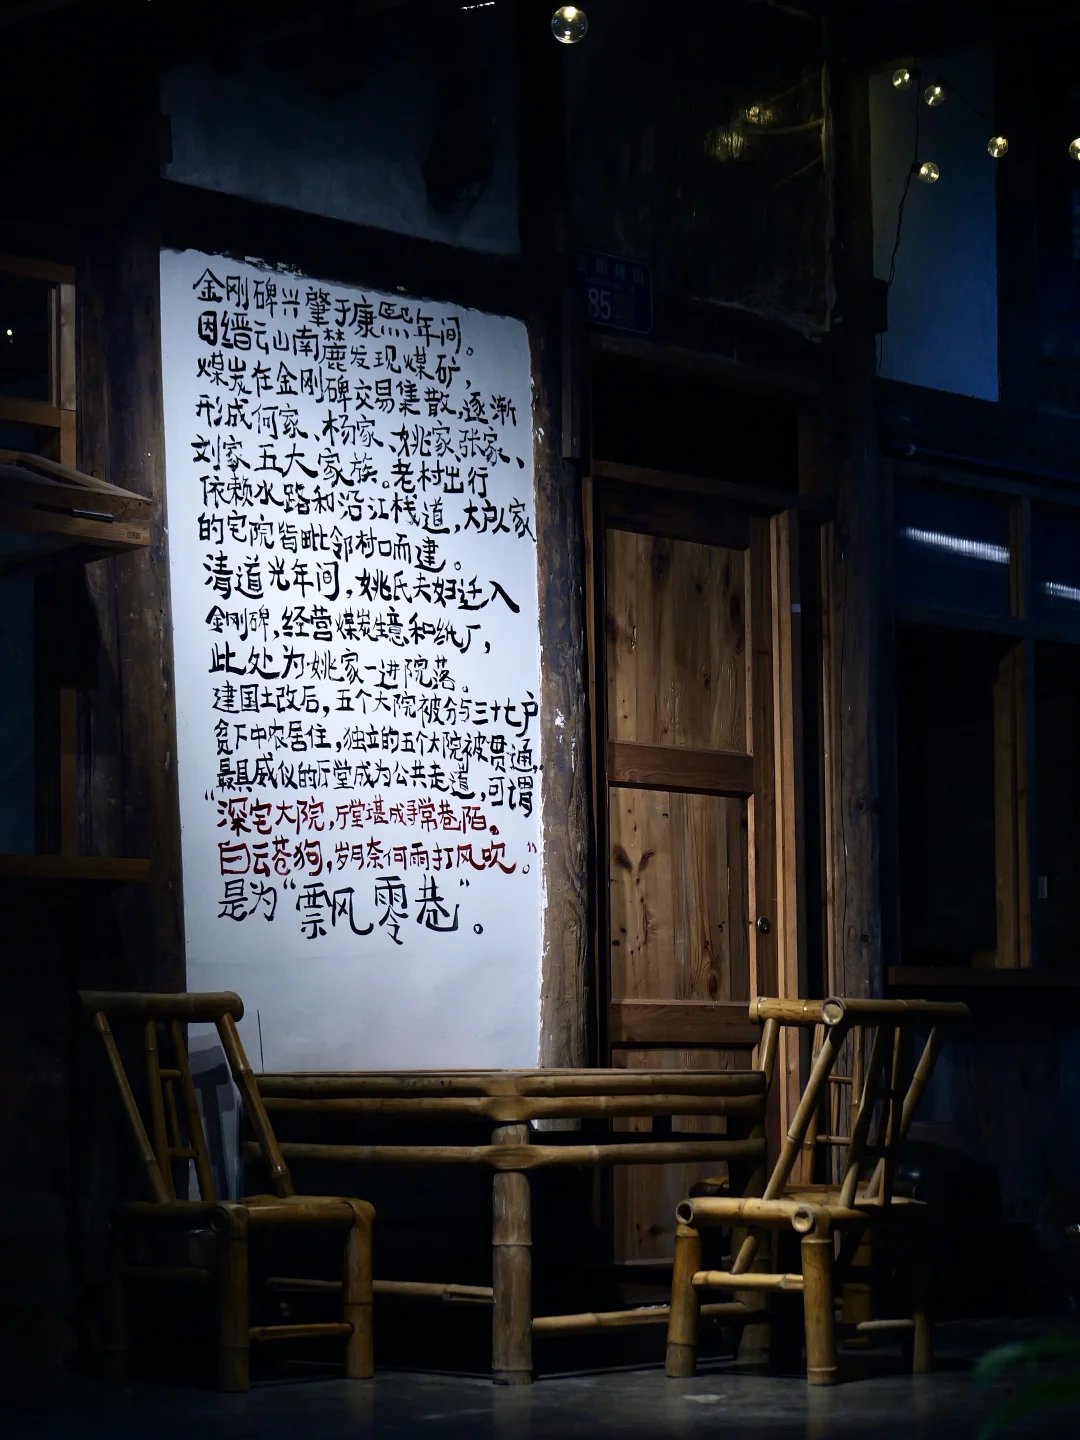 金刚碑兴肇于康熙年间。
因缙云山南麓发现煤矿，
煤炭在金刚碑交易集散，逐渐
形成何家、杨家、姚家、张家、
刘家五大家族。老村出行
依赖水路和沿江栈道，大户人家
的宅院皆毗邻村口而建。
清道光年间，姚氏夫妇迁入
金刚碑，经营煤炭生意和纸厂，
此处为姚家一进院落。
建国土改后，五个大院被分与三十七户
贫下中农居住，独立的五个大院被贯通，
最具威仪的厅堂成为公共走道，可谓
“深宅大院，厅堂堪成寻常巷陌。
白云苍狗，岁月奈何雨打风吹。”
是为“票风零巷”。
85